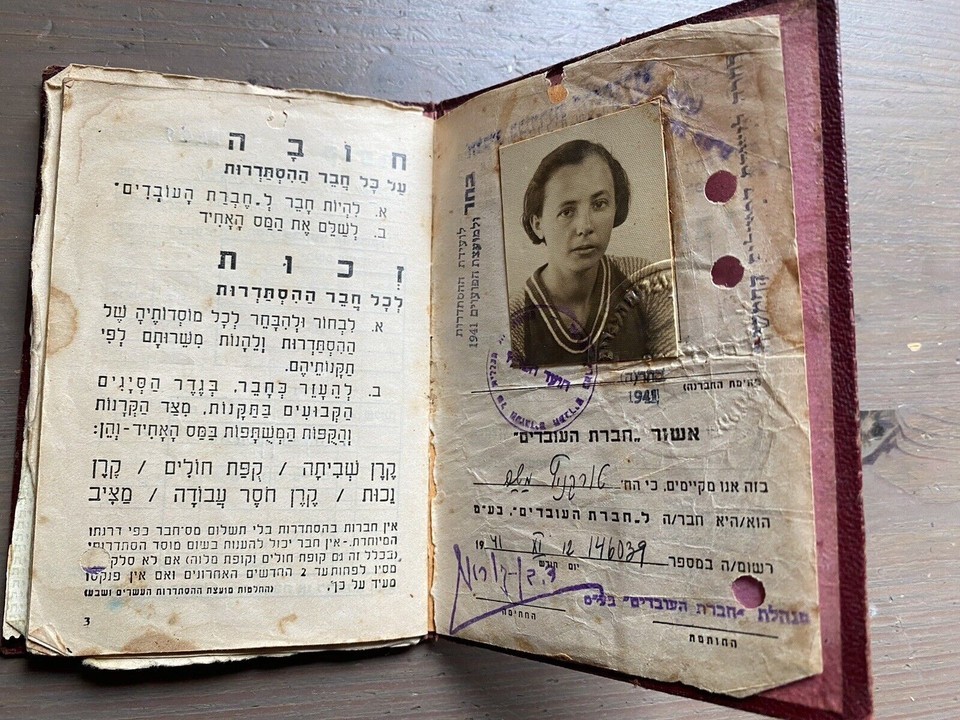 חוֹבָה
עַל כָּל חֲבֵר הַהִסְתַּדְּרוּת
א. לִהְיוֹת חָבֵר לְ„חֶבְרַת הָעוֹבְדִים"
ב. לְשַׁלֵּם אֶת הַמַּס הָאָחִיד
זְכוּת
לְכָל חֲבֵר הַהִסְתַּדְּרוּת
א. לִבְחוֹר וּלְהִבָּחֵר לְכָל מוֹסְדוֹתֶיהָ שֶׁל
הַהִסְתַּדְּרוּת וְלֵהָנוֹת מִשֵּׁרוּתָם לְפִי
תַּקָּנוֹתֵיהֶם.
ב. לְהֵעָזֵר כְּחָבֵר, בְּגֶדֶר הַסְּיָגִים
הַקְּבוּעִים בַּתַּקָּנוֹת, מִצַּד הַקְּרָנוֹת
וְהַקֻּפּוֹת הַמְשֻׁתָּפוֹת בַּמַּס הָאָחִיד-וְהֵן:
קֶרֶן שְׁבִיתָה / קֻפַּת חוֹלִים / קֶרֶן
נָכוּת / קֶרֶן חֹסֶר עֲבוֹדָה / מַצִּיב
אין חברות בהסתדרות בלי תשלום מס־חבר כפי דרגתו
המיוחדת.-אין חבר יכול להענות בשום מוסד הסתדרותי
(ובכלל זה גם קופת חולים וקופת מלוה) אם לא סלק
מסיו לפחות עד 2 החדשים האחרונים ואם אין פנקסו
מעיד על כך.
(החלטות מועצת ההסתדרות העשרים ושבע)
3
בחר לועידת ההסתדרות
ולמועצת הפועלים 1941
1941
(אימת החברות)
אשור „חברת העובדים"
בזה אנו מקיימים, כי הח'
הוא/היא חבר/ה ל„חברת העובדים", בע"מ
רשום/ה במספר 146039 12 XI 1941
יום חודש
מנהלת „חברת העובדים" בע"מ
החתימה
החותמת